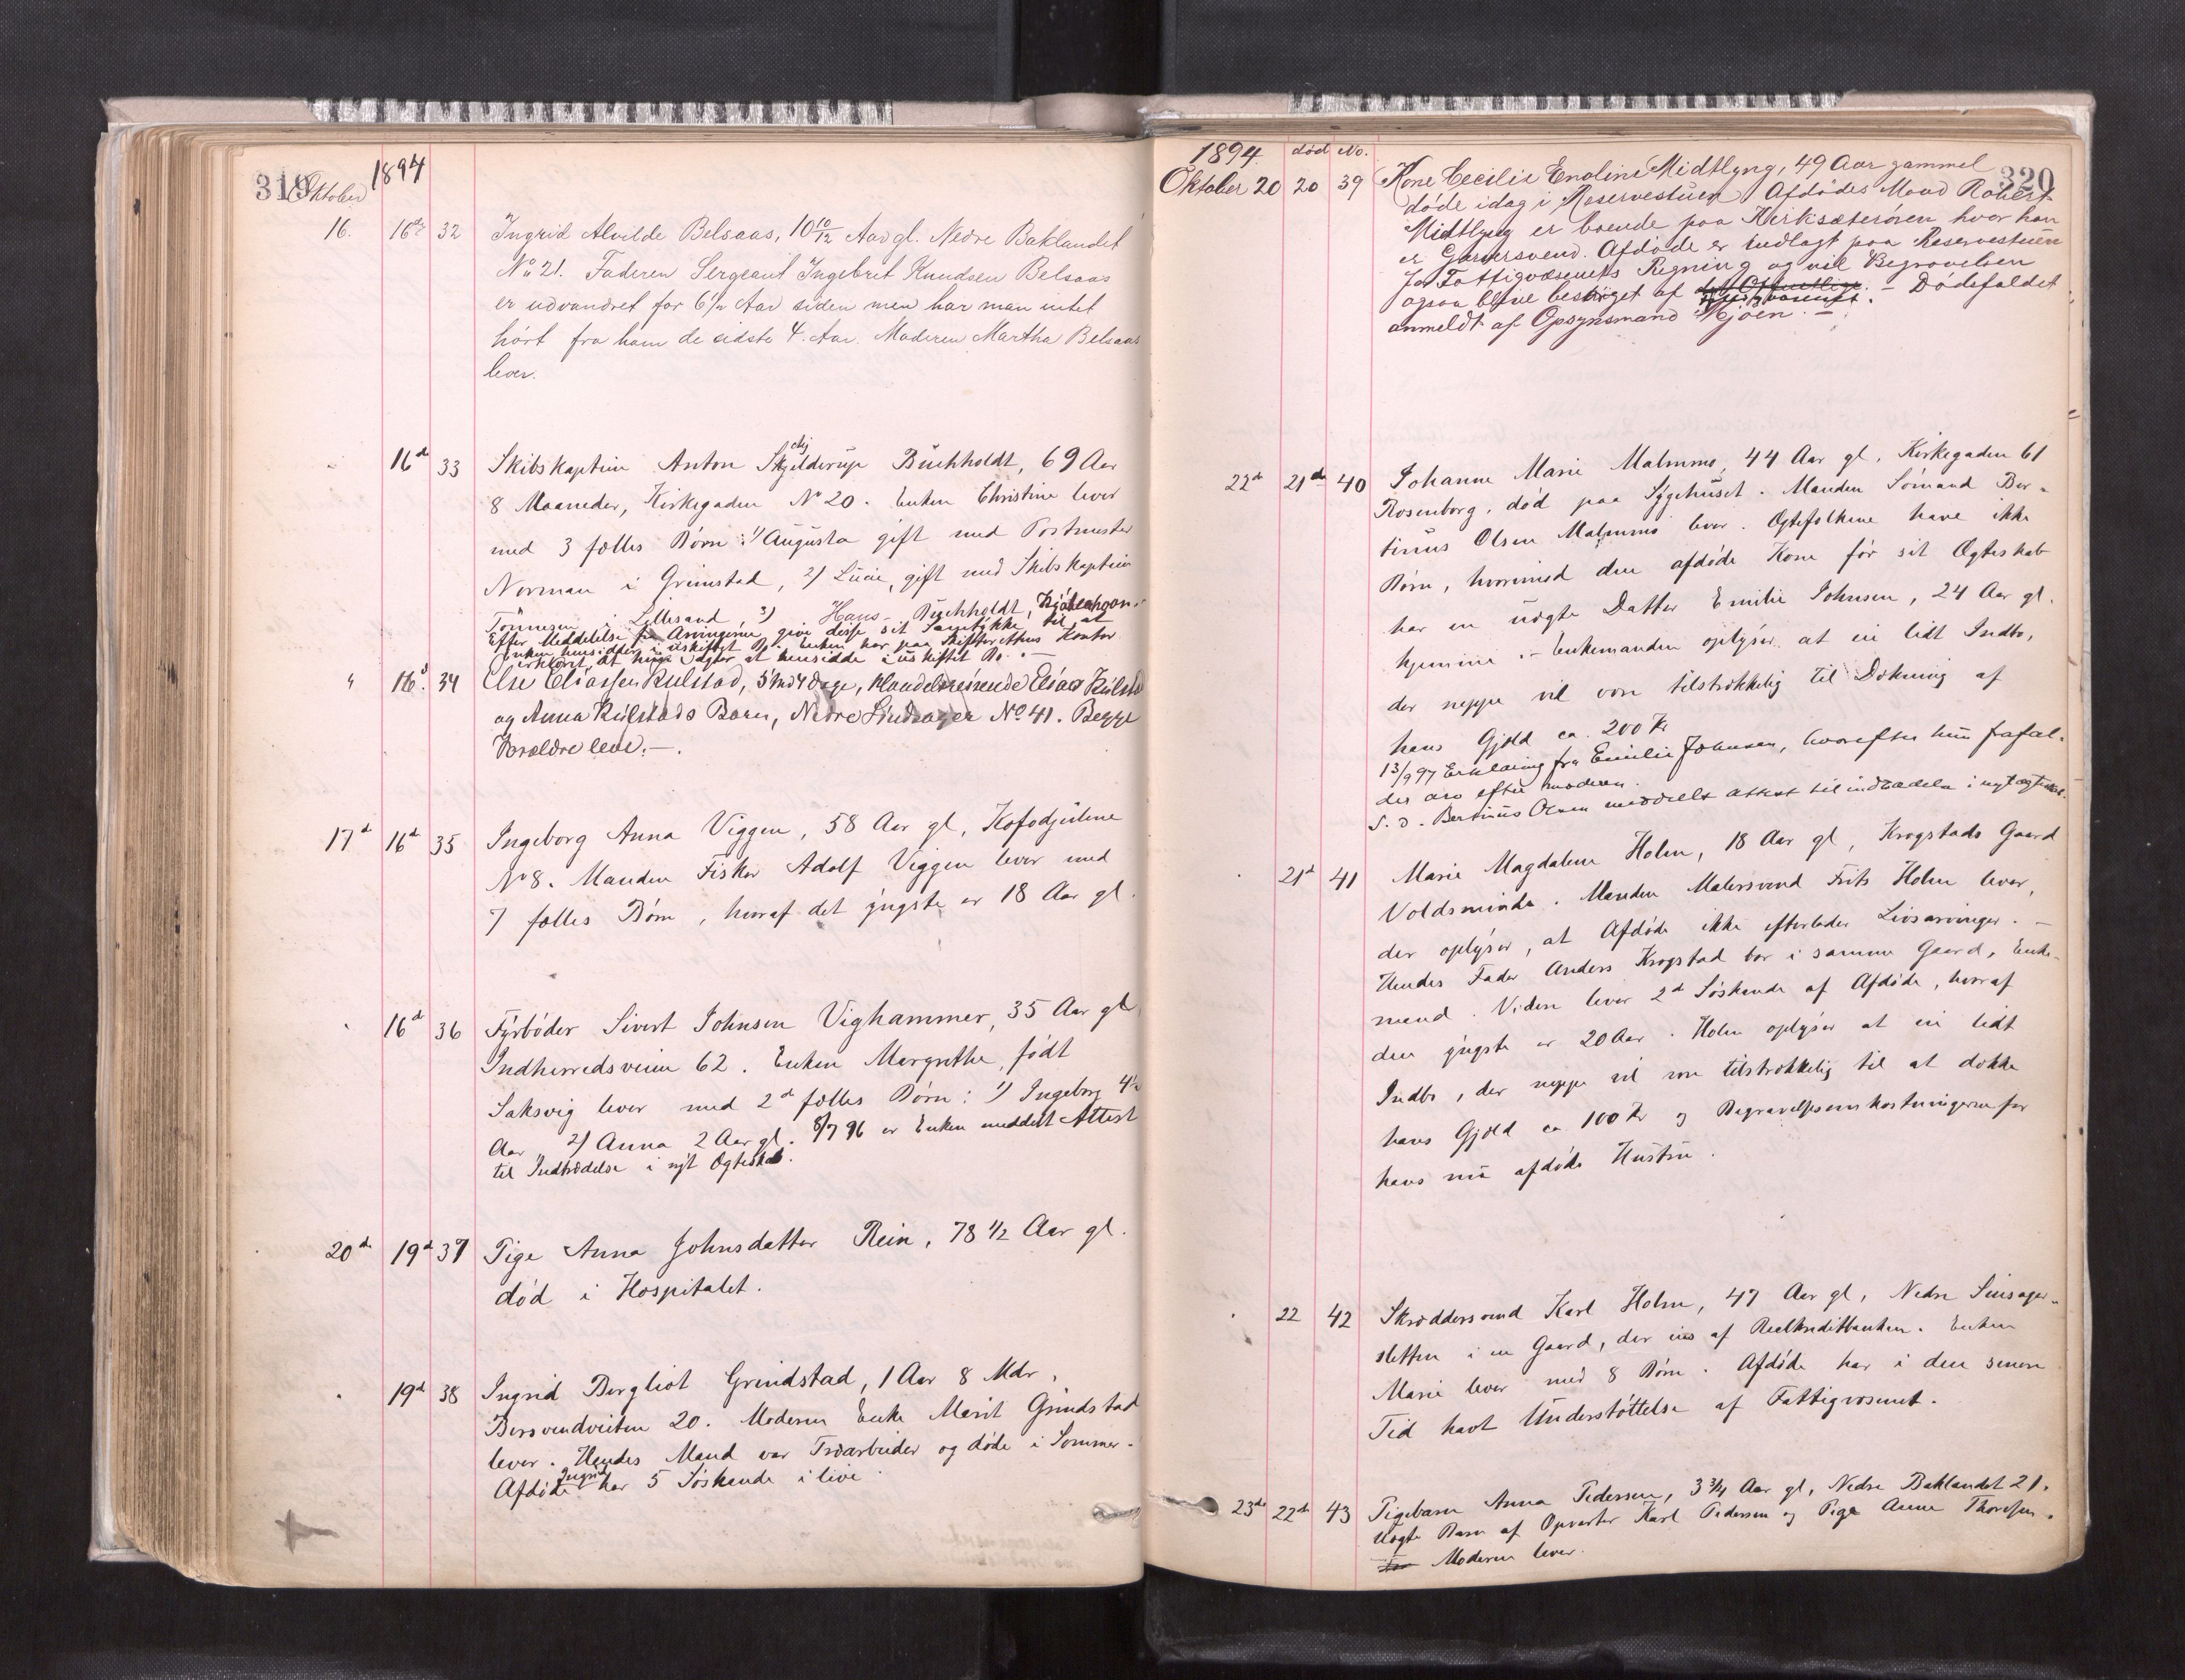 319
Oktober 1894
16. 16de 32 Ingrid Alvilde Belsaas, 10 10/12 Aar gl. Nedre Baklandet
No 21. Faderen Sergeant Ingebret Knudsen Belsaas
er udvandret for 6 1/2 Aar siden men har man intet
hørt fra ham de sidste 4. Aar. Moderen Martha Belsaas
lever.
16d 33 Skibskaptein Anton Skjelderup Buchholdt, 69 Aar
8 Maaneder, Kirkegaden No 20. Enken Christine lever
med 3 fælles Børn: 1) Augusta gift med Postmester
Norman i Grimstad, 2) Lucie, gift med Skibskaptein
Tønnesen i Lillesand 3) Hans Buchholdt, Kjøbenhavn.
Efter Meddelelse fra Arvingerne give disse sit Samtykke til at
Enken hensidder i uskiftet Bo. Enken har paa Skifterettens Kontor
erklæret, at hun agter at hensidde i uskiftet Bo. —
" 16d. 34 Else Eliassen Kulstad, 5 Md 4 Dage, Handelsreisende Elias Kulstad
og Anna Kulstads Barn, Nedre Lindsager No 41. Begge
Forældre leve. —.
17d 16d 35 Ingeborg Anna Viggen, 58 Aar gl, Kofodgjeilene
No 8. Manden Fisker Adolf Viggen lever med
7 fælles Børn, hvoraf det yngste er 18 Aar gl.
16d 36 Fyrbøder Sivert Johnsen Vighammer, 35 Aar gl,
Indherredsveien 62. Enken Margrethe, født
Saksvig lever med 2d fælles Børn: 1) Ingeborg 4 1/2
Aar 2) Anna 2 Aar gl. 8/7 96 er Enken meddelt Attest
til Indtrædelse i nyt Ægteskab.
20d 19d 37 Pige Anna Johnsdatter Rein, 78 1/2 Aar gl.
død i Hospitalet.
19d 38 Ingrid Bergliot Grindstad, 1 Aar 8 Mdr,
Bersvendveiten 20. Moderen Enke Marit Grindstad
lever. Hendes Mand var Træarbeider og døde i Sommer.
Afdøde Ingrid har 5 Søskende i live.
320
1894 død No.
Oktober 20 20 39 Kone Cecilie Enoline Midtlyng, 49 Aar gammel
døde idag i Reservestuen. Afdødes Mand Robert
Midtlyng er boende paa Kirksæterøren hvor han
er Garversvend. Afdøde er indlagt paa Reservestuen
for Fattigvæsenets Regning og vil Begravelsen
ogsaa blive besørget af det Offentlige Fattigvæsenet. — Dødsfaldet
anmeldt af Opsynsmand Mjøen. —
22de 21de 40 Johanne Marie Malmmo, 44 Aar gl. Kirkegaden 61
Rosenborg, død paa Sygehuset. Manden Sømand Ber-
tinius Olsen Malmmo lever. Ægtefolkene have ikke
Børn, hvorimod den afdøde Kone før sit Ægteskab
har en uægte Datter Emilie Johnsen, 24 Aar gl.
hjemme. — Enkemanden oplyser at eie lidt Indbo,
der neppe vil være tilstrækkelig til Dækning af
hans Gjæld ca. 200 Kr
13/9 97 Erklæring fra Emilie Johnsen, hvorefter hun frafal-
der arv efter moderen.
S. D. Bertinius Olsen meddelt attest til indtrædelse i nyt ægteskab.
21d 41 Marie Magdalene Holm, 18 Aar gl, Krogstads Gaard
Voldsminde. Manden Malersvend Frits Holm lever,
der oplyser, at Afdøde ikke efterlader Livsarvinger. —
Hendes Fader Anders Krogstad bor i samme Gaard, Enke-
mand. Viden lever 2d Søskende af Afdøde, hvoraf
den yngste er 20 Aar. Holm oplyser at eie lidt
Indbo, der neppe vil være tilstrækkelig til at dække
hans Gjæld ca 100 Kr og Begravelsesomkostningerne for
hans nu afdøde Hustru.
22 42 Skræddersvend Karl Holm, 47 Aar gl, Nedre Sinsager-
sletten i en Gaard, der eies af Realkreditbanken. Enken
Marie lever med 8 Børn. Afdøde har i den senere
Tid havt Understøttelse af Fattigvæsenet.
23de 22de 43 Pigebarn Anna Pedersen, 3 3/4 Aar gl, Nedre Baklandet 21.
Uægte Barn af Opvarter Karl Pedersen og Pige Anne Thoresen.
Moderen lever.